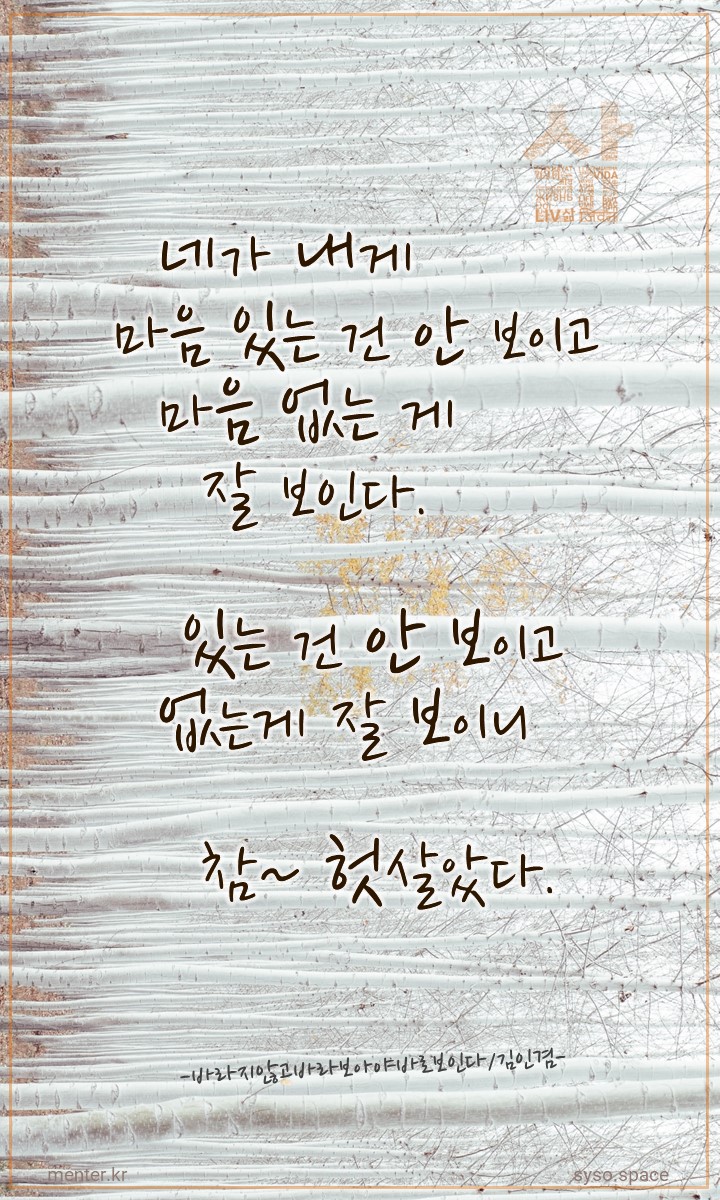 삶
VIDA
LIV
네가 내게
마음 있는 건 안 보이고
마음 없는 게
잘 보인다.
있는 건 안 보이고
없는게 잘 보이니
참~ 헛살았다.
-바라지않고바라보아야바로보인다/김인겸-
menter.kr
syso.space